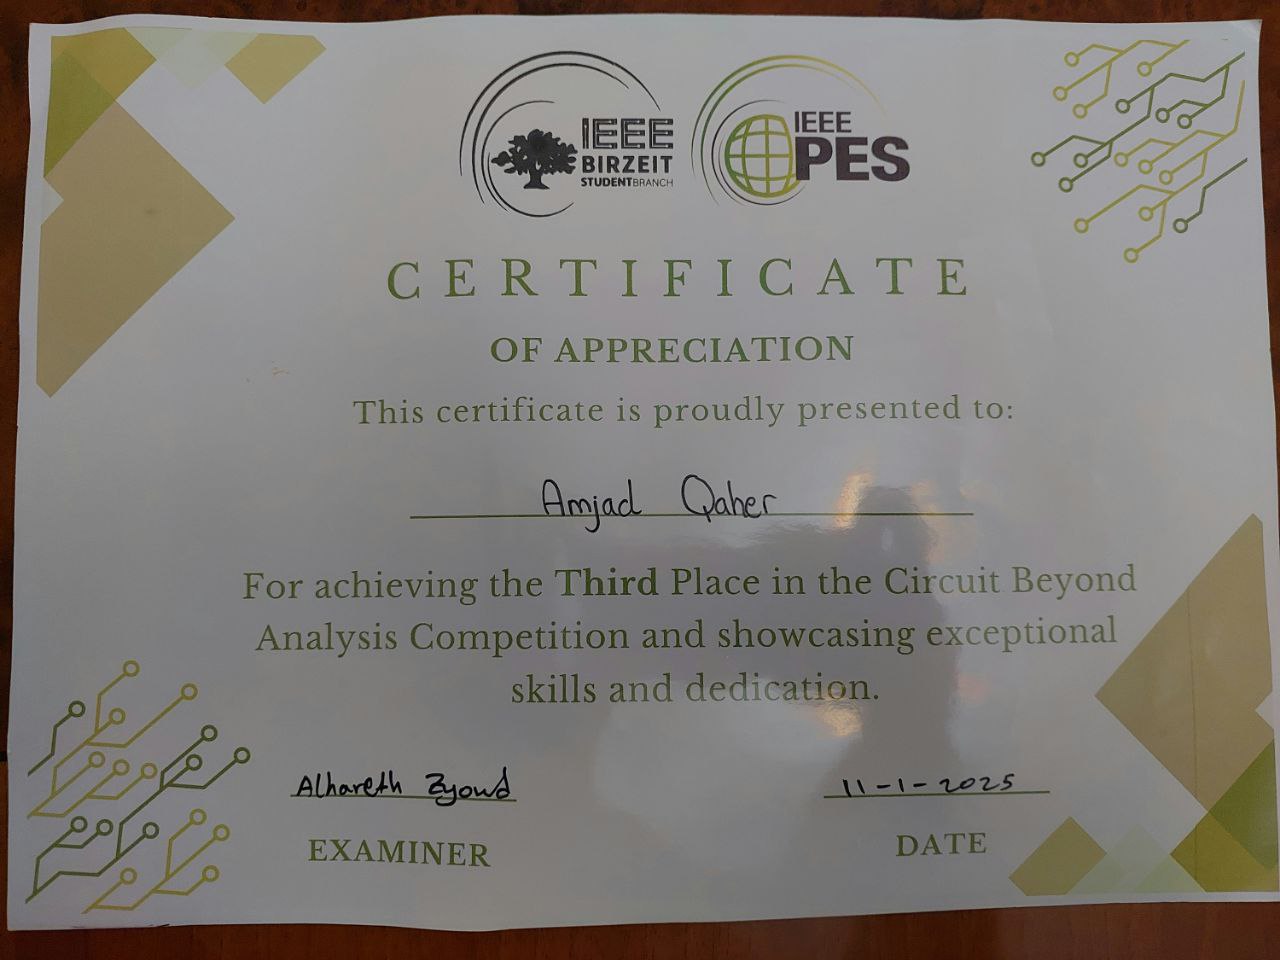 IEEE
BIRZEIT
STUDENTBRANCH
IEEE
PES
CERTIFICATE
OF APPRECIATION
This certificate is proudly presented to:
Amjad Qaher
For achieving the Third Place in the Circuit Beyond
Analysis Competition and showcasing exceptional
skills and dedication.
Alhareth Zyoud
11-1-2025
EXAMINER
DATE